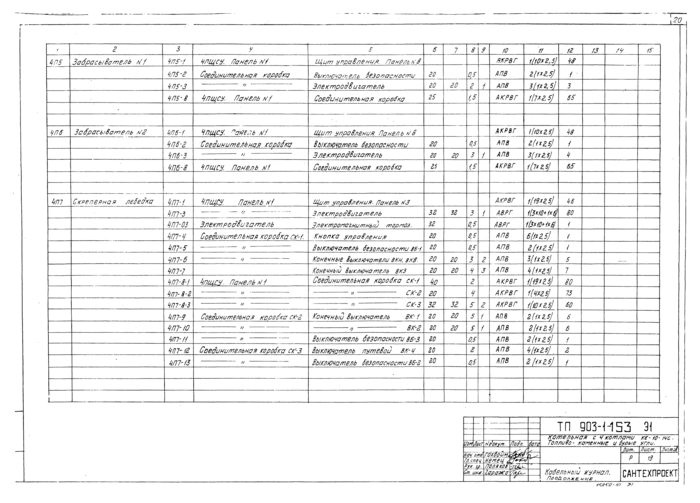 20
1 2 3 4 5 6 7 8 9 10 11 12 13 14 15
4П5 Забрасыватель №1 4П5-1 4ПЩСУ. Панель №1 Щит управления. Панель №8 АКРВГ 1(10x2,5) 48
4П5-2 Соединительная коробка Выключатель безопасности 20 0,5 АПВ 2(1x2,5) 1
4П5-3 —"— Электродвигатель 20 20 2 1 АПВ 3(1x2,5) 3
4П5-8 4ПЩСУ Панель №1 Соединительная коробка 25 1,5 АКРВГ 1(7x2,5) 65
4П6 Забрасыватель №2 4П6-1 4ПЩСУ. Панель №1 Щит управления Панель №6 АКРВГ 1(10x2,5) 48
4П6-2 Соединительная коробка Выключатель безопасности 20 0,5 АПВ 2(1x2,5) 1
4П6-3 —"— Электродвигатель 20 20 3 1 АПВ 3(1x2,5) 4
4П6-8 4ПЩСУ Панель №1 Соединительная коробка 25 1,5 АКРВГ 1(7x2,5) 65
4П7 Скреперная лебедка 4П7-1 4ПЩСУ Панель №1 Щит управления. Панель №3 АКРВГ 1(19x2,5) 46
4П7-3 —"— Электродвигатель 32 32 3 1 АВРГ 80
4П7-03 Электродвигатель Электромагнитный тормоз. 32 0,5 АВРГ 1
4П7-4 Соединительная коробка СК-1. Кнопка управления 20 0,5 АПВ 6(1x2,5) 1
4П7-5 —"— Выключатель безопасности ВБ-1 20 0,5 АПВ 2(1x2,5) 1
4П7-6 —"— Конечные выключатели 20 20 3 2 АПВ 3(1x2,5) 5
4П7-7 —"— Конечный выключатель ВК3 20 20 4 3 АПВ 4(1x2,5) 7
4П7-8-1 4ПЩСУ Панель №1 Соединительная коробка СК-1 40 2 АКРВГ 1(19x2,5) 80
4П7-8-2 —"— —"— СК-2 20 4 АКРВГ 1(4x2,5) 73
4П7-8-3 —"— —"— СК-3 32 32 5 2 АКРВГ 1(10x2,5) 60
4П7-9 Соединительная коробка СК-2 Конечный выключатель ВК-1 20 20 5 1 АПВ 2(1x2,5) 6
4П7-10 —"— —"— ВК-2 20 20 5 1 АПВ 2(1x2,5) 6
4П7-11 —"— Выключатель безопасности ВБ-3 20 0,5 АПВ 2(1x2,5) 1
4П7-12 Соединительная коробка СК-3 Выключатель путевой ВК-4 20 2 АПВ 4(1x2,5) 2
4П7-13 —"— Выключатель безопасности ВБ-2 20 0,5 АПВ 2(1x2,5) 1
ТП 903-1-153 Э1
Котельная с 4 котлами КЕ-10-14С.
Топливо-каменные и бурые угли.
Лист
Р 19
Кабельный журнал.
Продолжение.
САНТЕХПРОЕКТ